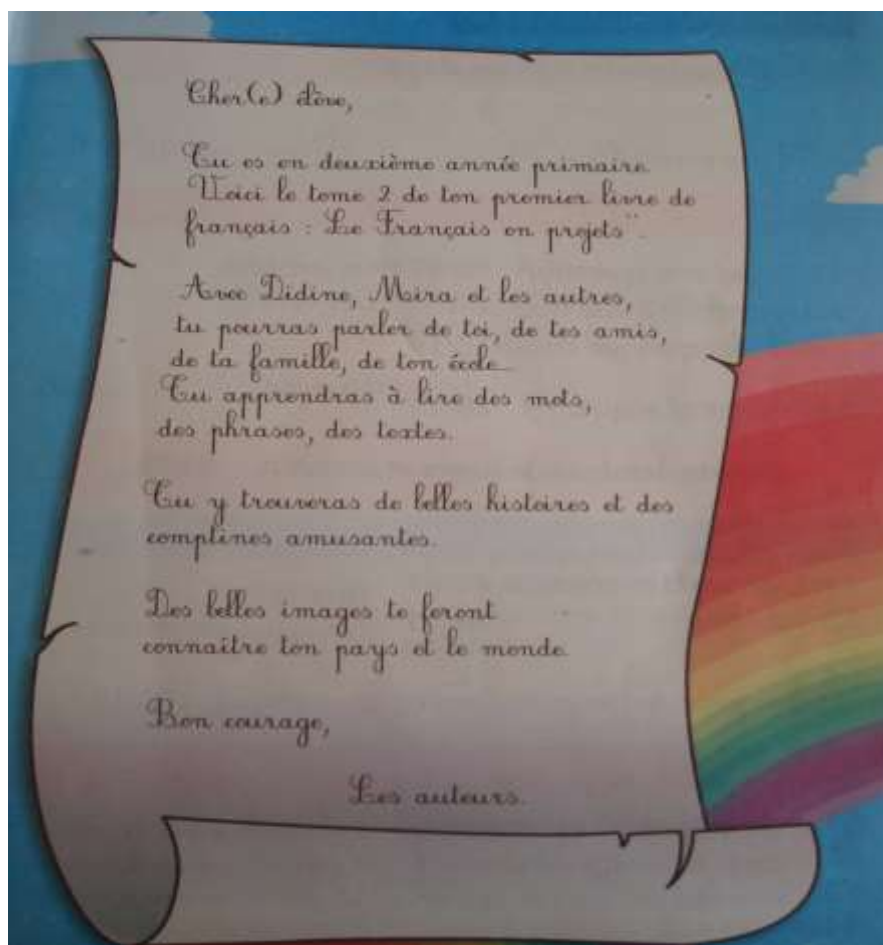 Cher(e) élève,
Tu es en deuxième année primaire.
Voici le tome 2 de ton premier livre de
français : Le Français en projets".
Avec Didine, Mira et les autres,
tu pourras parler de toi, de tes amis,
de ta famille, de ton école.
Tu apprendras à lire des mots,
des phrases, des textes.
Tu y trouveras de belles histoires et des
comptines amusantes.
Des belles images te feront
connaître ton pays et le monde.
Bon courage,
Les auteurs.